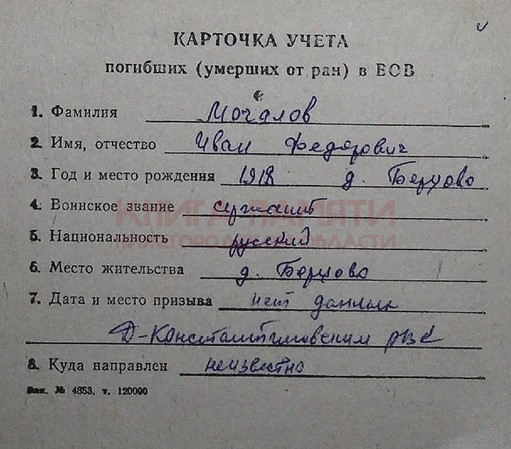 КАРТОЧКА УЧЕТА
погибших (умерших от ран) в ВОВ
1. Фамилия Мочалов
2. Имя, отчество Иван Федорович
3. Год и место рождения 1918 д. Берсово
4. Воинское звание сержант
5. Национальность русский
КНИГА ПАМЯТИ
НИЖЕГОРОДСКОЙ ОБЛАСТИ
6. Место жительства д. Берсово
7. Дата и место призыва нет данных
Д-Константиновским РВК
8. Куда направлен неизвестно
Зак. № 4853, т. 120000